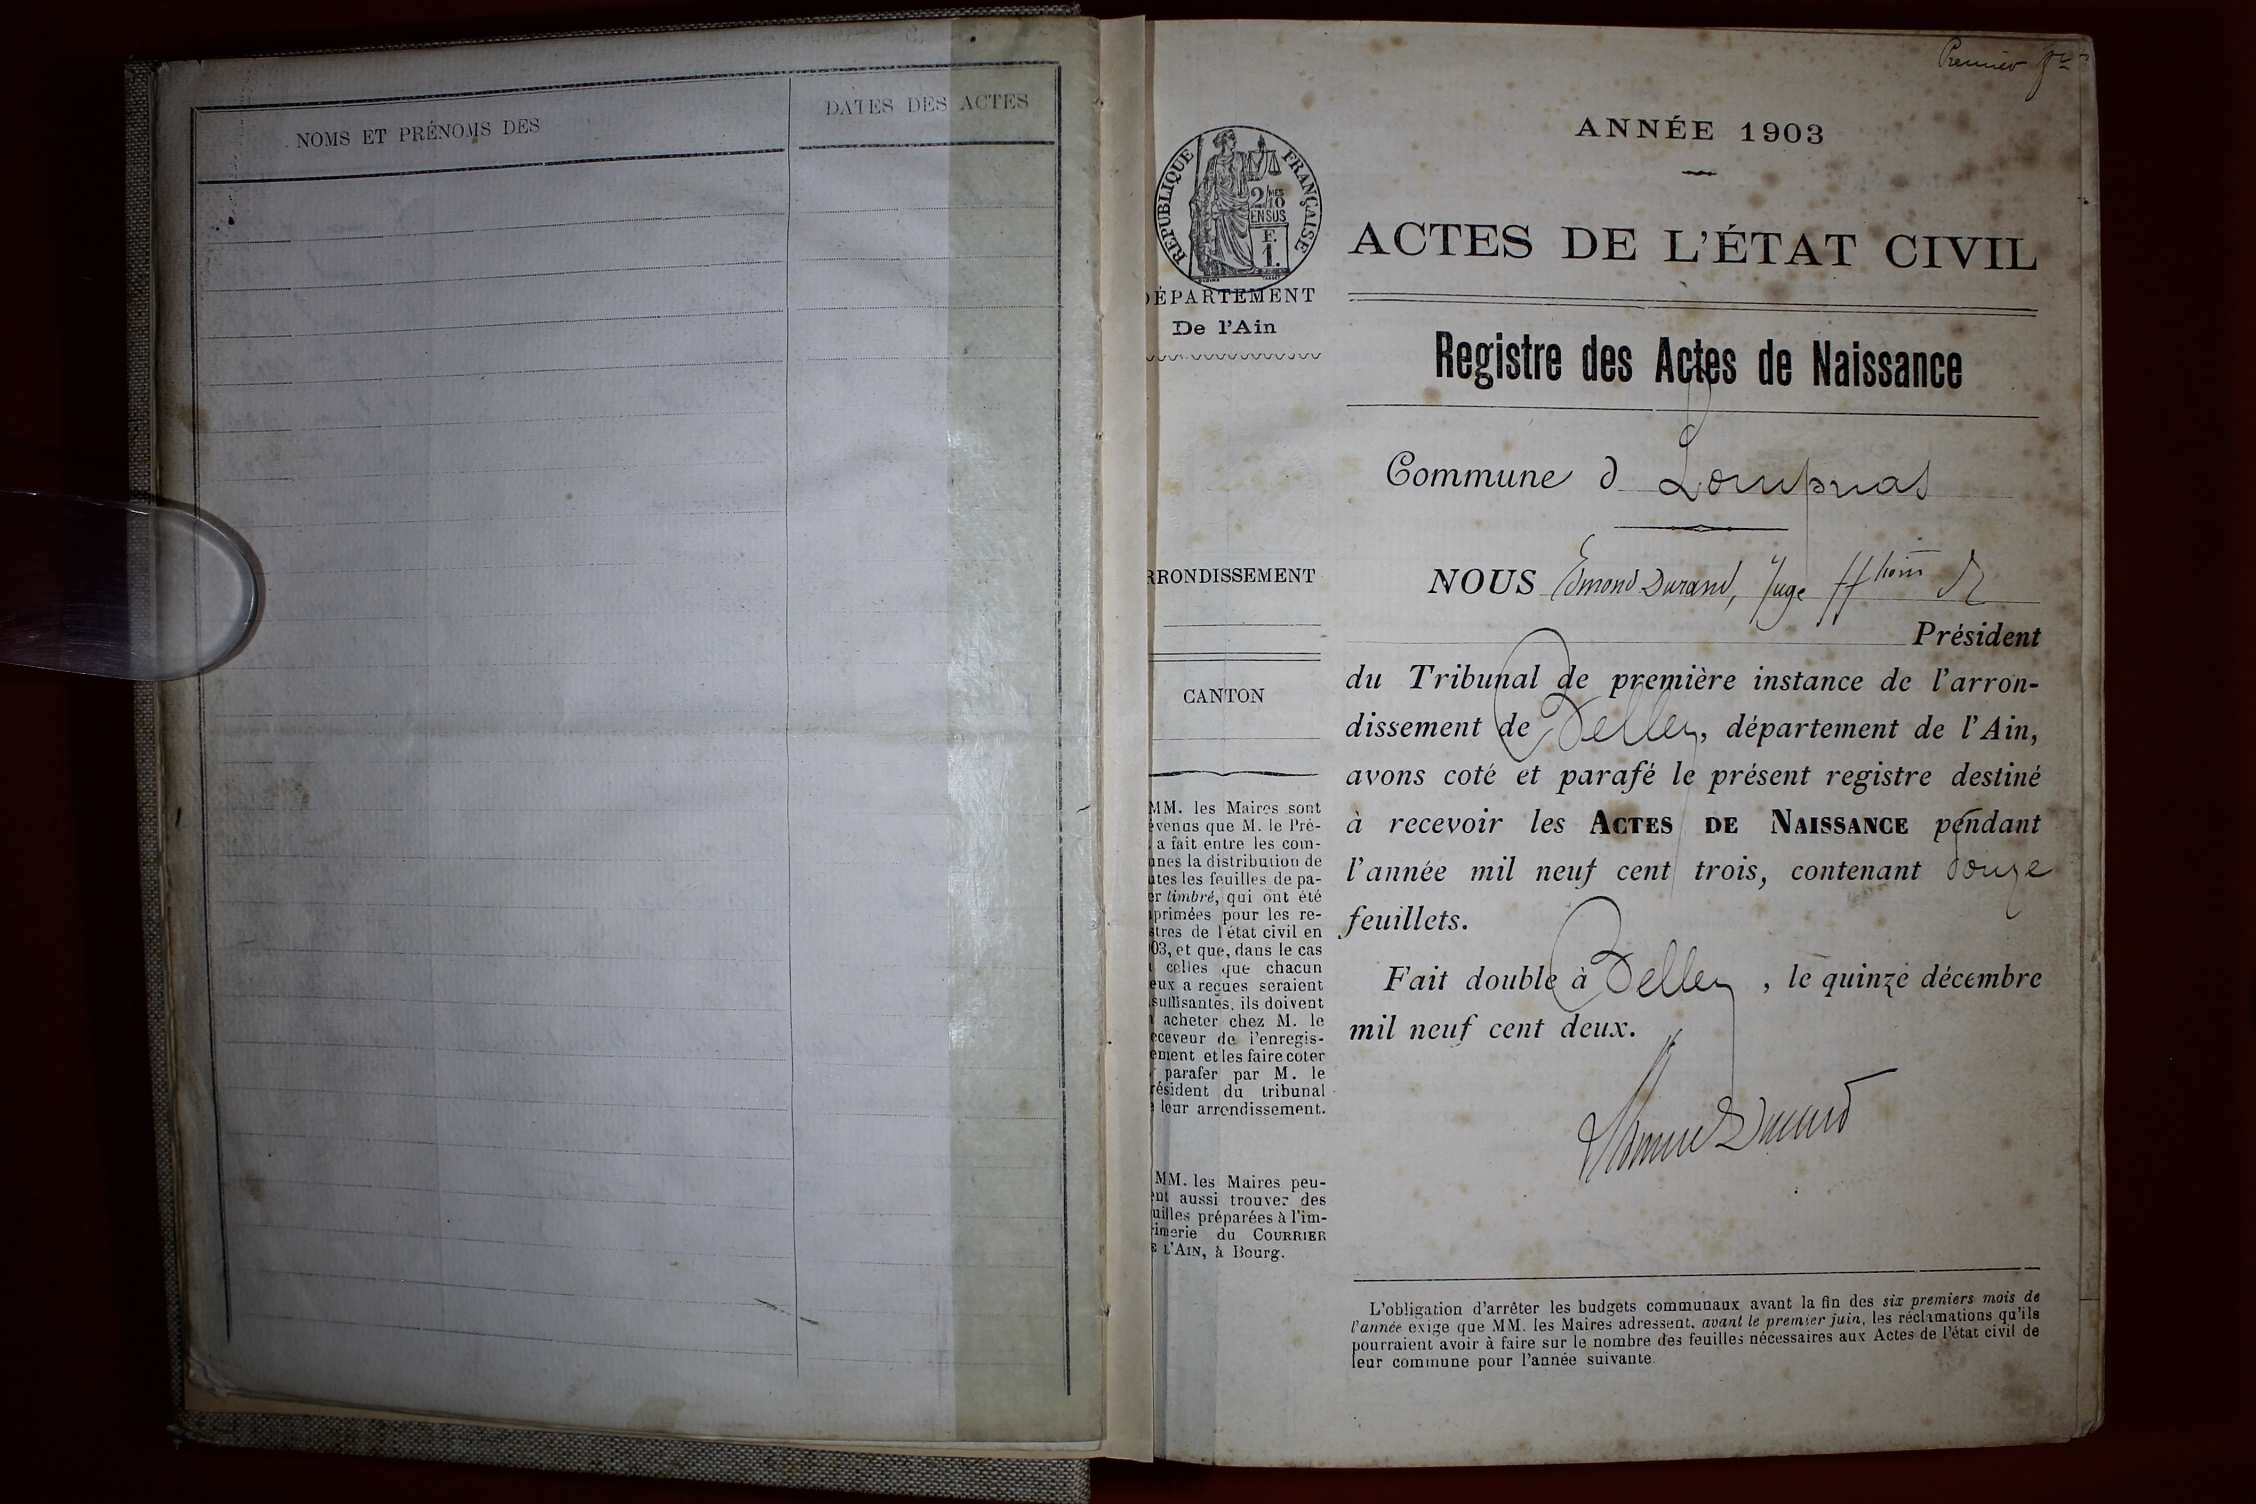 NOMS ET PRÉNOMS DES
DATES DES ACTES
Premier
ANNÉE 1903
RÉPUBLIQUE FRANÇAISE
2/10
MES
EN SUS
F.
1.
ACTES DE L'ÉTAT CIVIL
DÉPARTEMENT
De l'Ain
Registre des Actes de Naissance
Commune d Lompnas
RRONDISSEMENT
NOUS Edmond Durand, Juge
Président
CANTON
du Tribunal de première instance de l'arron-
dissement de Belley, département de l'Ain,
avons coté et parafé le présent registre destiné
à recevoir les ACTES DE NAISSANCE pendant
l'année mil neuf cent trois, contenant douze
feuillets.
Fait double à Belley, le quinze décembre
mil neuf cent deux.
Edmond Durand
MM. les Maires sont
évenus que M. le Pré-
a fait entre les com-
unes la distribution de
utes les feuilles de pa-
er timbré, qui ont été
primées pour les re-
stres de l'état civil en
03, et que, dans le cas
celles que chacun
eux a reçues seraient
suffisantes, ils doivent
acheter chez M. le
eceveur de l'enregis-
ement et les faire coter
parafer par M. le
résident du tribunal
leur arrondissement.
MM. les Maires peu-
ent aussi trouver des
uilles préparées à l'im-
rimerie du COURRIER
E L'AIN, à Bourg.
L'obligation d'arrêter les budgets communaux avant la fin des six premiers mois de
l'année exige que MM. les Maires adressent, avant le premier juin, les réclamations qu'ils
pourraient avoir à faire sur le nombre des feuilles nécessaires aux Actes de l'état civil de
leur commune pour l'année suivante.